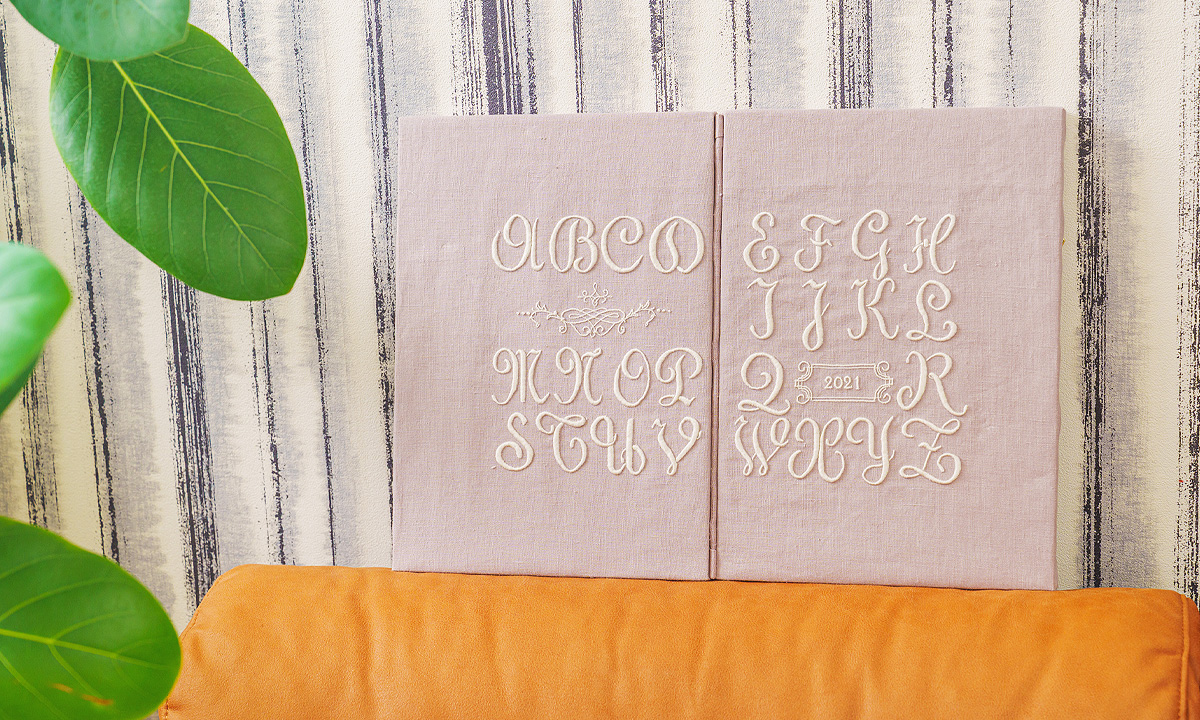 ABCD EFGH
IJKL
MNOP Q 2021 R
STUV WXYZ